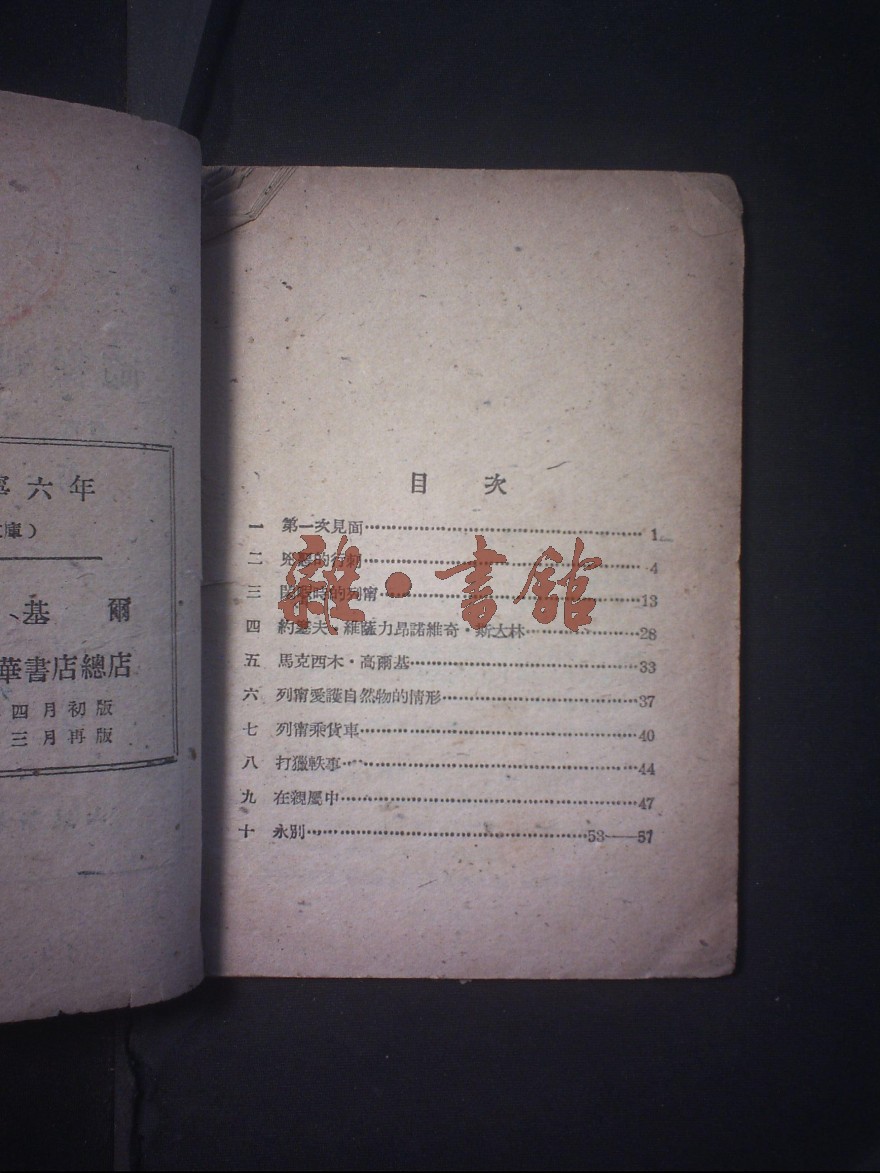 寧六年
庫）
、基爾
華書店總店
四月初版
三月再版
目次
一 第一次見面 1
二 兇惡的行刺 4
三 時的列甯 13
四 約塞夫·維薩力昂諾維奇·斯大林 28
五 馬克西木·高爾基 33
六 列甯愛護自然物的情形 37
七 列甯乘貨車 40
八 打獵軼事 44
九 在親屬中 47
十 永別 53——57
雜·書館